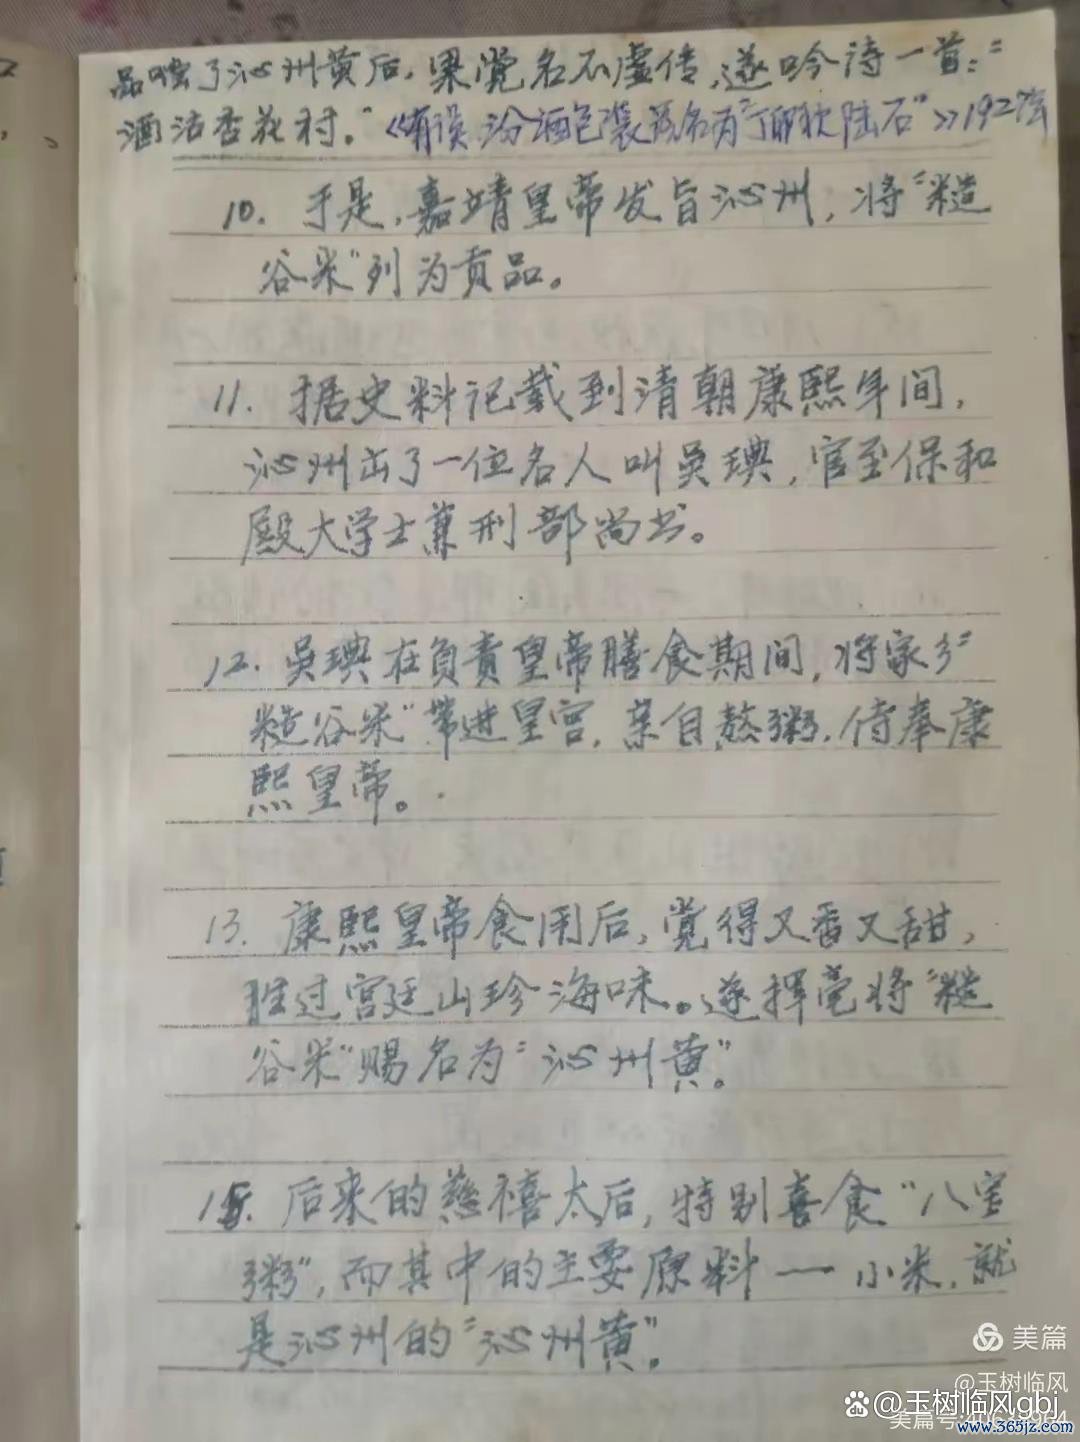 品尝了沁州黄后，果觉名不虚传，遂吟诗一首："
酒沽杏花村。"《有误，汾酒包装署名为"丁耶犾陆石"》192字
10. 于是，嘉靖皇帝发旨沁州，将"糙
谷米"列为贡品。
11. 据史料记载到清朝康熙年间，
沁州出了一位名人叫吴琠，官至保和
殿大学士兼刑部尚书。
12. 吴琠在负责皇帝膳食期间，将家乡"
糙谷米"带进皇宫，亲自熬粥，侍奉康
熙皇帝。
13. 康熙皇帝食用后，觉得又香又甜，
胜过宫廷山珍海味。遂挥毫将"糙
谷米"赐名为"沁州黄"。
15. 后来的慈禧太后，特别喜食"八宝
粥"，而其中的主要原料——小米，就
是沁州的"沁州黄"。
美篇
@玉树临风
@玉树临风gbj
美篇号:
www.365jz.com